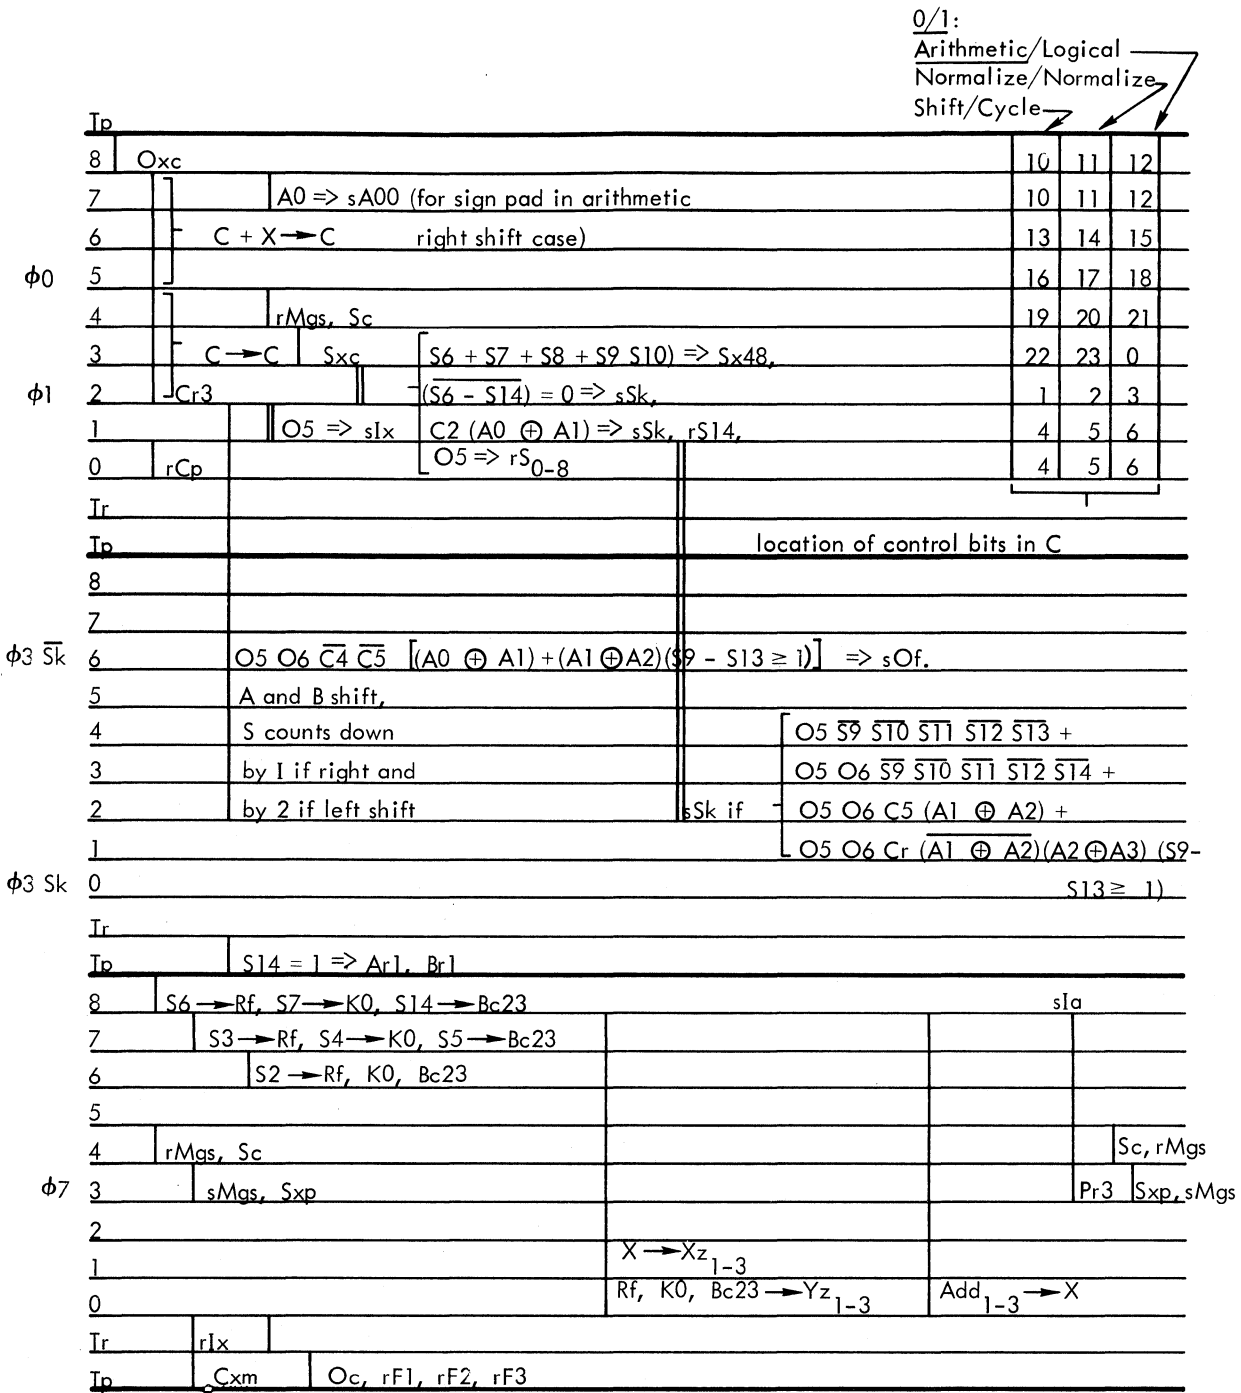 0/1:
Arithmetic/Logical
Normalize/Normalize
Shift/Cycle
Tp
8 Oxc 10 11 12
7 A0 => sA00 (for sign pad in arithmetic 10 11 12
6 C + X → C right shift case) 13 14 15
ϕ0 5 16 17 18
4 rMgs, Sc 19 20 21
3 C → C Sxc S6 + S7 + S8 + S9 S10) => Sx48, 22 23 0
ϕ1 2 Cr3 (S̅6̅ ̅-̅ ̅S̅1̅4̅) = 0 => sSk, 1 2 3
1 O5 => sIx C2 (A0 ⊕ A1) => sSk, rS14, 4 5 6
0 rCp O5 => rS0-8 4 5 6
Tr
Tp location of control bits in C
8
7
ϕ3 S̅k̅ 6 O5 O6 C̅4̅ C̅5̅ [(A0 ⊕ A1) + (A1 ⊕ A2)(S9 - S13 ≥ 1)] => sOf.
5 A and B shift,
4 S counts down O5 S̅9̅ S̅1̅0̅ S̅1̅1̅ S̅1̅2̅ S̅1̅3̅ +
3 by I if right and O5 O6 S̅9̅ S̅1̅0̅ S̅1̅1̅ S̅1̅2̅ S̅1̅4̅ +
2 by 2 if left shift sSk if O5 O6 C5 (A1 ⊕ A2) +
1 O5 O6 Cr (A̅1̅ ̅⊕̅ ̅A̅2̅)(A2 ⊕ A3) (S9-
ϕ3 Sk 0 S13 ≥ 1)
Tr
Tp S14 = 1 => Ar1, Br1
8 S6 → Rf, S7 → K0, S14 → Bc23 sIa
7 S3 → Rf, S4 → K0, S5 → Bc23
6 S2 → Rf, K0, Bc23
5
4 rMgs, Sc Sc, rMgs
ϕ7 3 sMgs, Sxp Pr3 Sxp, sMgs
2
1 X → Xz1-3
0 Rf, K0, Bc23 → Yz1-3 Add1-3 → X
Tr rIx
Tp Cxm Oc, rF1, rF2, rF3